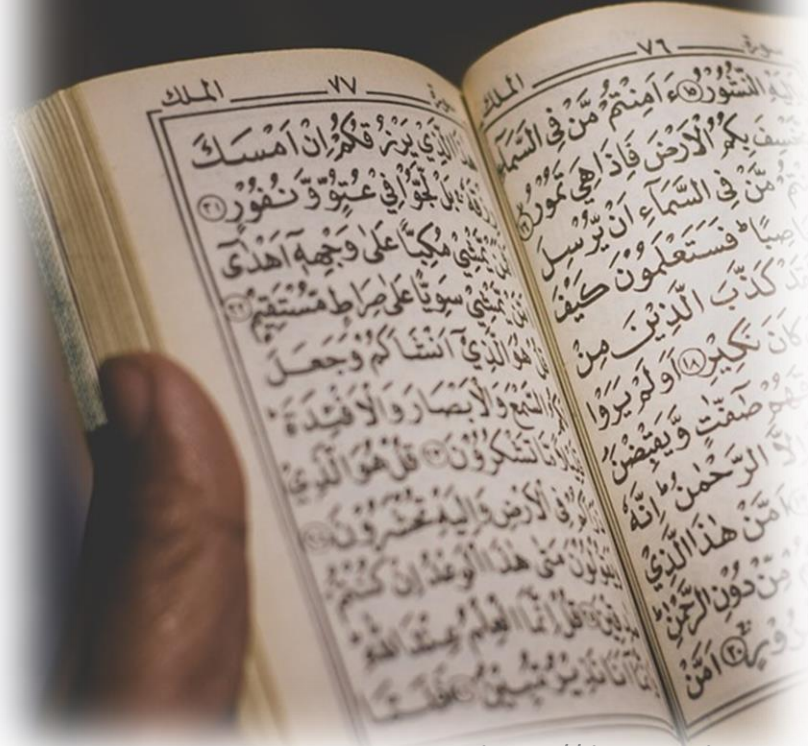 ٧٦ الملك
النُّشُوْرُ ۝١٥ ءَاَمِنْتُمْ مَّنْ فِى السَّمَآءِ
بِكُمُ الْاَرْضَ فَاِذَا هِيَ تَمُوْرُ ۝١٦
مَّنْ فِى السَّمَآءِ اَنْ يُّرْسِلَ
فَسَتَعْلَمُوْنَ كَيْفَ
كَذَّبَ الَّذِيْنَ مِنْ
كَانَ نَكِيْرِ ۝١٨ اَوَلَمْ يَرَوْا
صٰٓفّٰتٍ وَّيَقْبِضْنَ
اِلَّا الرَّحْمٰنُ ؕ اِنَّهٗ
اَمَّنْ هٰذَا الَّذِيْ
مِّنْ دُوْنِ الرَّحْمٰنِ ؕ
۝٢٠ اَمَّنْ
٧٧ الملك
الَّذِيْ يَرْزُقُكُمْ اِنْ اَمْسَكَ
رِزْقَهٗ ۚ بَلْ لَّجُّوْا فِيْ عُتُوٍّ وَّنُفُوْرٍ ۝٢١
يَّمْشِيْ مُكِبًّا عَلٰى وَجْهِهٖٓ اَهْدٰٓى
يَّمْشِيْ سَوِيًّا عَلٰى صِرَاطٍ مُّسْتَقِيْمٍ ۝٢٢
قُلْ هُوَ الَّذِيْٓ اَنْشَاَكُمْ وَجَعَلَ
لَكُمُ السَّمْعَ وَالْاَبْصَارَ وَالْاَفْـِٕدَةَ ؕ
قَلِيْلًا مَّا تَشْكُرُوْنَ ۝٢٣ قُلْ هُوَ الَّذِيْ
ذَرَاَكُمْ فِى الْاَرْضِ وَاِلَيْهِ تُحْشَرُوْنَ ۝٢٤
وَيَقُوْلُوْنَ مَتٰى هٰذَا الْوَعْدُ اِنْ كُنْتُمْ
صٰدِقِيْنَ ۝٢٥ قُلْ اِنَّمَا الْعِلْمُ عِنْدَ اللّٰهِ
وَاِنَّمَآ اَنَا نَذِيْرٌ مُّبِيْنٌ ۝٢٦ فَلَمَّا